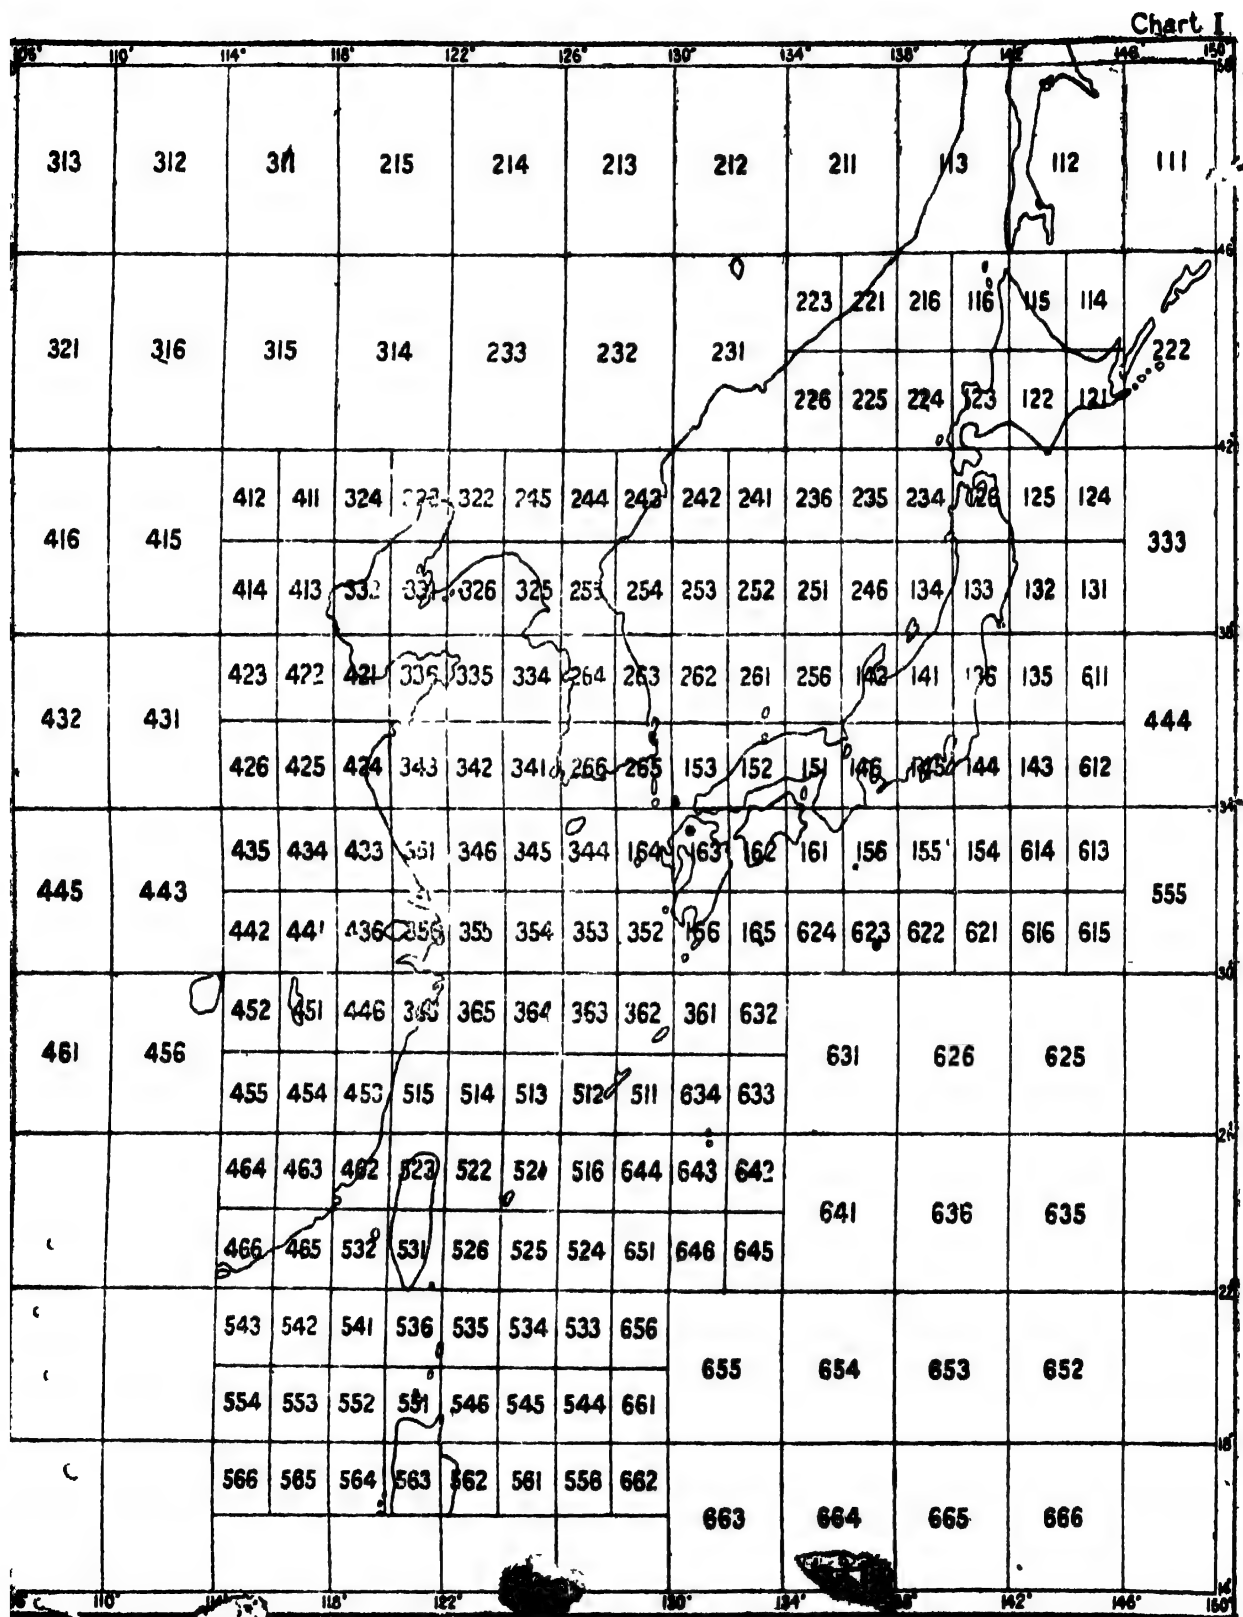 Chart I
110° 114° 118° 122° 126° 130° 134° 138° 142° 146° 150°
313 312 311 215 214 213 212 211 113 112 111
46°
223 221 216 116 115 114
321 316 315 314 233 232 231 222
226 225 224 123 122 121
42°
412 411 324 323 322 245 244 243 242 241 236 235 234 126 125 124
416 415 333
414 413 332 331 326 325 255 254 253 252 251 246 134 133 132 131
38°
423 422 421 336 335 334 264 263 262 261 256 142 141 136 135 611
432 431 444
426 425 424 343 342 341 266 265 153 152 151 146 145 144 143 612
34°
435 434 433 351 346 345 344 164 163 162 161 156 155 154 614 613
445 443 555
442 441 436 356 355 354 353 352 166 165 624 623 622 621 616 615
30°
452 451 446 366 365 364 363 362 361 632
461 456 631 626 625
455 454 453 515 514 513 512 511 634 633
26°
464 463 462 523 522 521 516 644 643 642
641 636 635
466 465 532 531 526 525 524 651 646 645
22°
543 542 541 536 535 534 533 656
655 654 653 652
554 553 552 551 546 545 544 661
18°
566 565 564 563 562 561 556 662
663 664 665 666
110° 114° 118° 122° 130° 134° 138° 142° 146° 150°